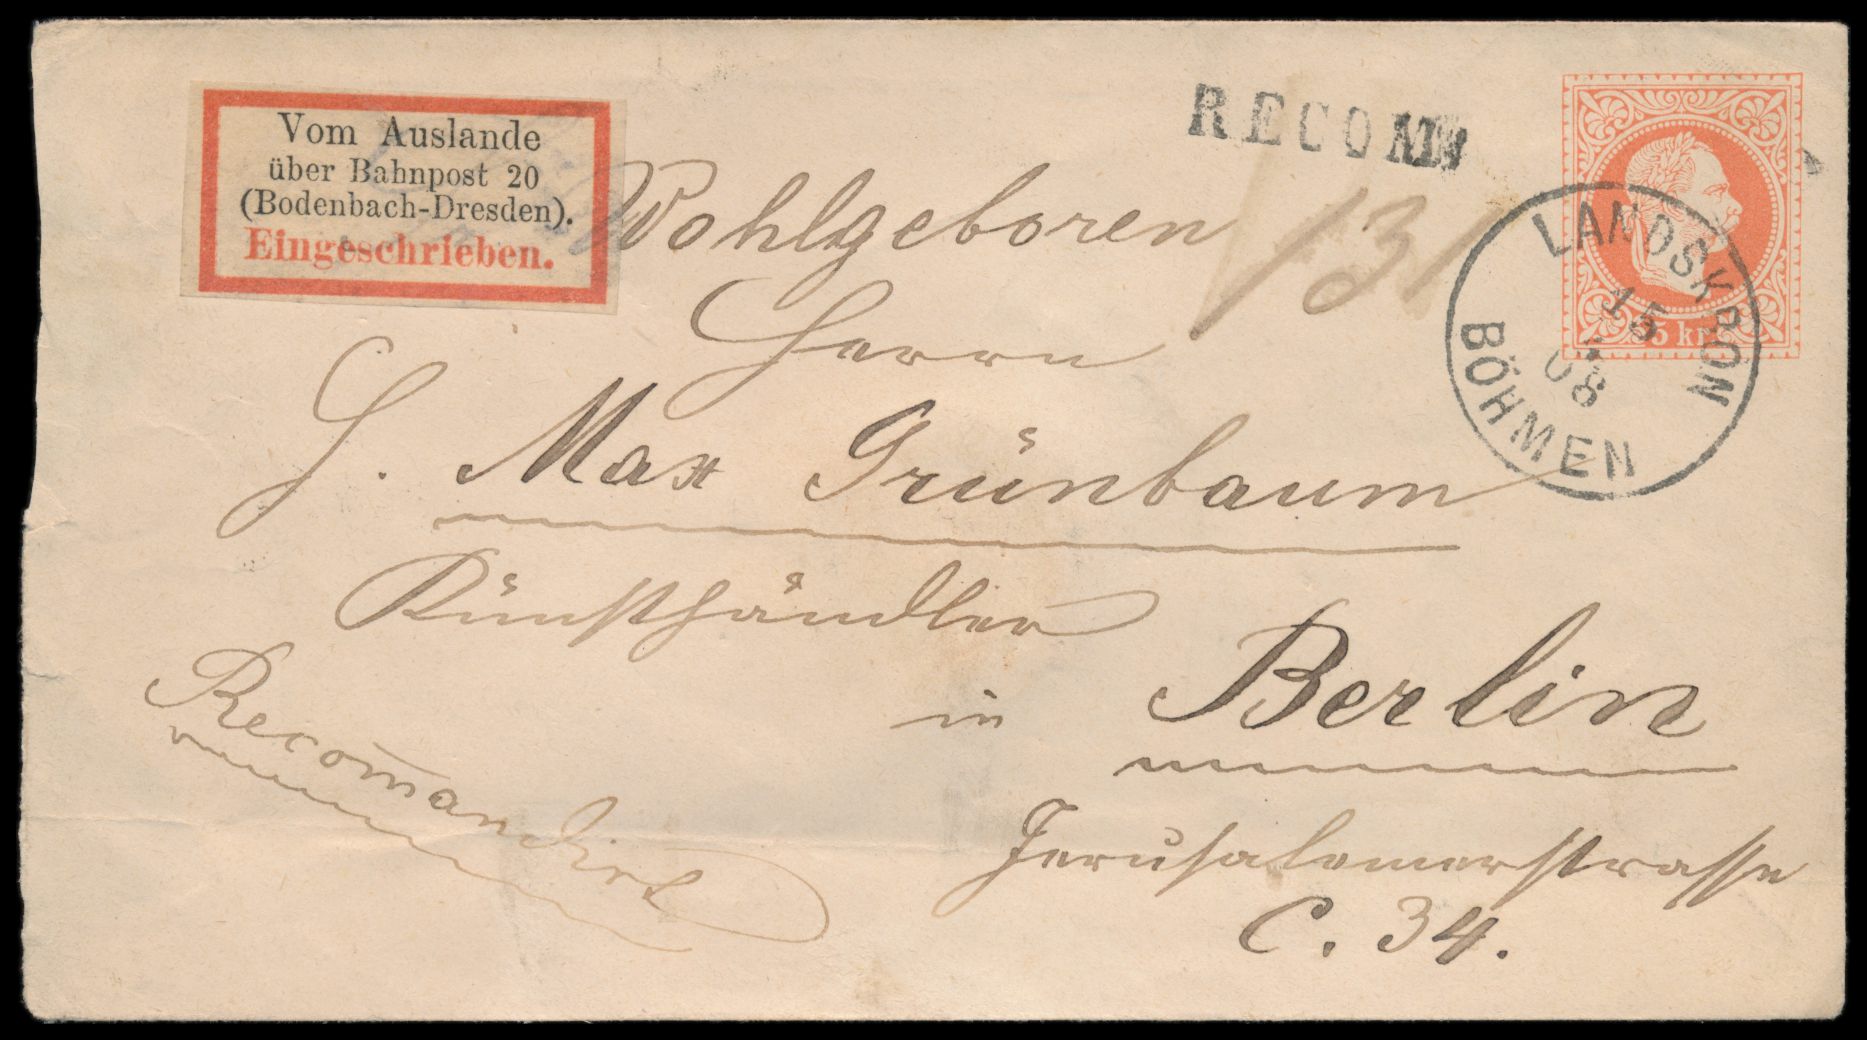 Vom Auslande
über Bahnpost 20
(Bodenbach-Dresden).
Eingeschrieben.
RECOM
131
5 kr.
LANDSKRON
15
08
BÖHMEN
Wohlgeboren
Herrn
S. Max Grünbaum
Künsthändler
in Berlin
Recom̄andirt
Jerusalemerstrasse
C. 34.